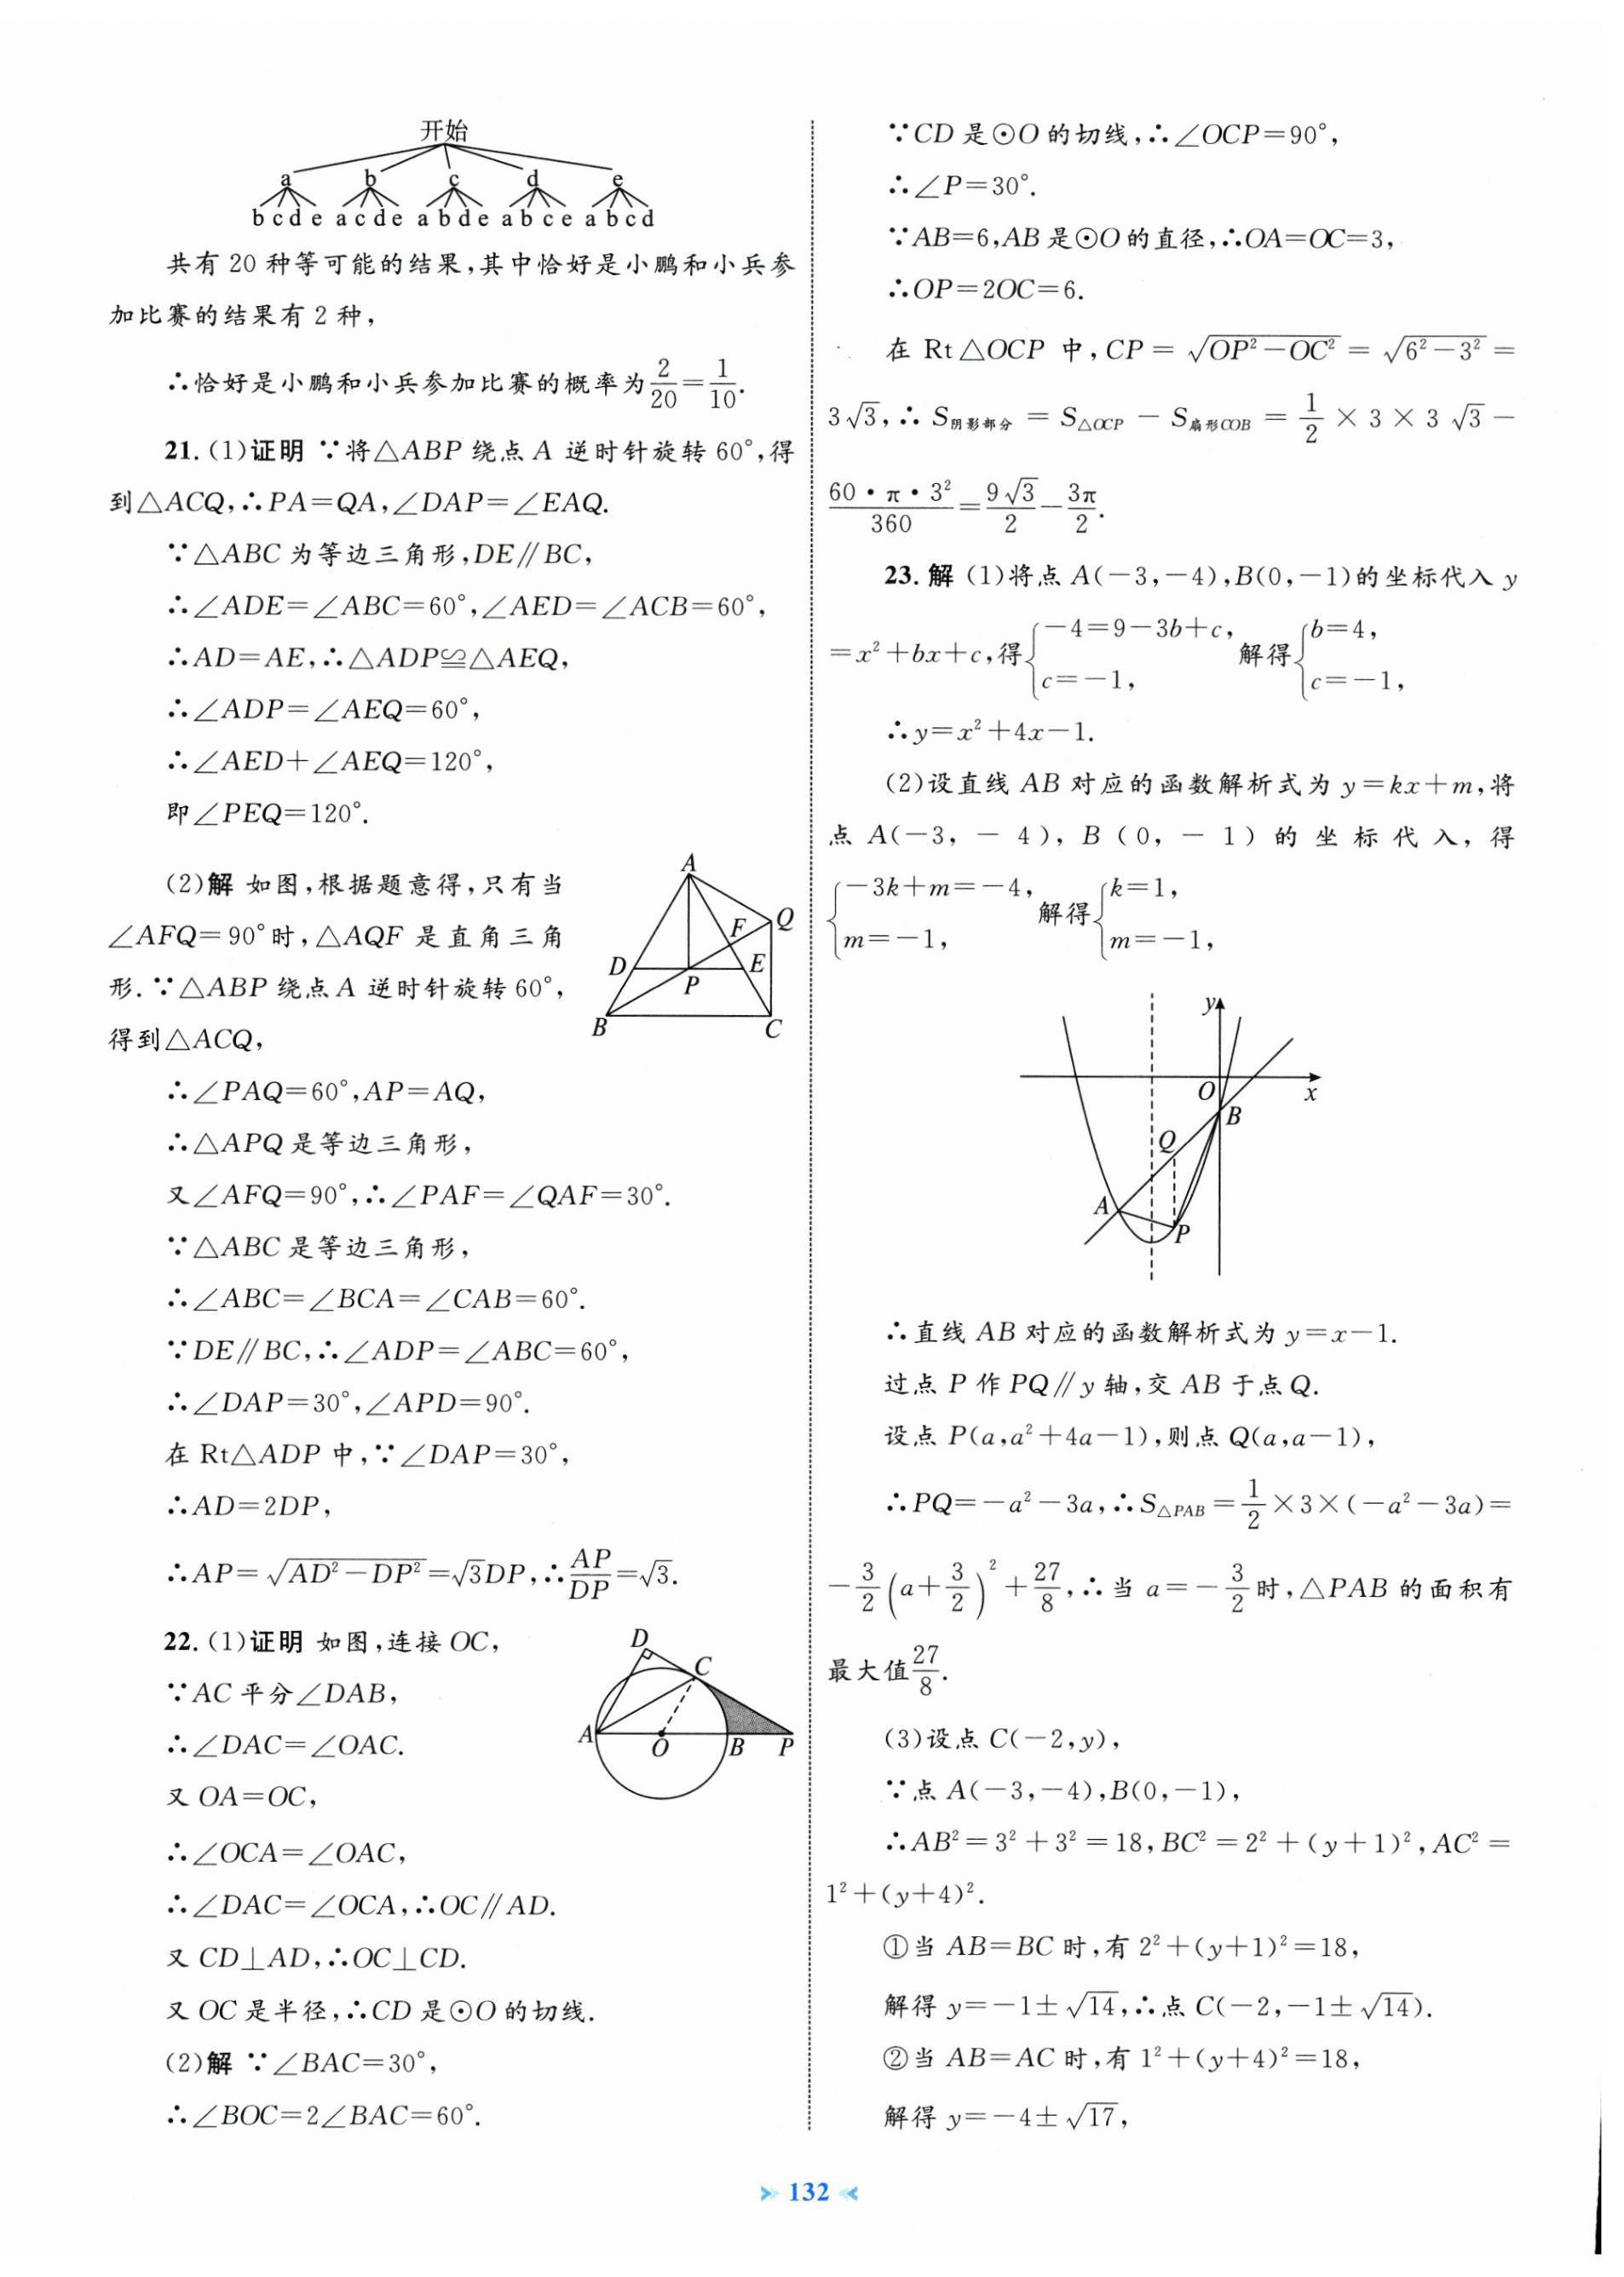 开始
a b c d e
b c d e a c d e a b d e a b c e a b c d
共有 20 种等可能的结果,其中恰好是小鹏和小兵参
加比赛的结果有 2 种,
∴恰好是小鹏和小兵参加比赛的概率为2/20=1/10.
21. (1)证明 ∵将△ABP 绕点 A 逆时针旋转 60°,得
到△ACQ,∴PA=QA,∠DAP=∠EAQ.
∵△ABC 为等边三角形,DE∥BC,
∴∠ADE=∠ABC=60°,∠AED=∠ACB=60°,
∴AD=AE,∴△ADP≌△AEQ,
∴∠ADP=∠AEQ=60°,
∴∠AED+∠AEQ=120°,
即∠PEQ=120°.
(2)解 如图,根据题意得,只有当
∠AFQ=90°时,△AQF 是直角三角
形.∵△ABP 绕点 A 逆时针旋转 60°,
得到△ACQ,
A
Q
F
D
E
P
B
C
∴∠PAQ=60°,AP=AQ,
∴△APQ 是等边三角形,
又∠AFQ=90°,∴∠PAF=∠QAF=30°.
∵△ABC 是等边三角形,
∴∠ABC=∠BCA=∠CAB=60°.
∵DE∥BC,∴∠ADP=∠ABC=60°,
∴∠DAP=30°,∠APD=90°.
在 Rt△ADP 中,∵∠DAP=30°,
∴AD=2DP,
∴AP=√(AD²-DP²)=√3DP,∴AP/DP=√3.
22. (1)证明 如图,连接 OC,
∵AC 平分∠DAB,
∴∠DAC=∠OAC.
又 OA=OC,
D
C
A
O
B
P
∴∠OCA=∠OAC,
∴∠DAC=∠OCA,∴OC∥AD.
又 CD⊥AD,∴OC⊥CD.
又 OC 是半径,∴CD 是⊙O 的切线.
(2)解 ∵∠BAC=30°,
∴∠BOC=2∠BAC=60°.
∵CD 是⊙O 的切线,∴∠OCP=90°,
∴∠P=30°.
∵AB=6,AB 是⊙O 的直径,∴OA=OC=3,
∴OP=2OC=6.
在 Rt△OCP 中,CP=√(OP²-OC²)=√(6²-3²)=
3√3,∴S阴影部分=S△OCP-S扇形COB=1/2×3×3√3-
60·π·3²/360=9√3/2-3π/2.
23. 解 (1)将点 A(-3,-4),B(0,-1)的坐标代入 y
=x²+bx+c,得{-4=9-3b+c, c=-1, 解得{b=4, c=-1,
∴y=x²+4x-1.
(2)设直线 AB 对应的函数解析式为 y=kx+m,将
点 A(-3,-4),B(0,-1)的坐标代入,得
{-3k+m=-4, m=-1, 解得{k=1, m=-1,
y
O
x
B
Q
A
P
∴直线 AB 对应的函数解析式为 y=x-1.
过点 P 作 PQ∥y 轴,交 AB 于点 Q.
设点 P(a,a²+4a-1),则点 Q(a,a-1),
∴PQ=-a²-3a,∴S△PAB=1/2×3×(-a²-3a)=
-3/2(a+3/2)²+27/8,∴当 a=-3/2时,△PAB 的面积有
最大值27/8.
(3)设点 C(-2,y),
∵点 A(-3,-4),B(0,-1),
∴AB²=3²+3²=18,BC²=2²+(y+1)²,AC²=
1²+(y+4)².
①当 AB=BC 时,有 2²+(y+1)²=18,
解得 y=-1±√14,∴点 C(-2,-1±√14).
②当 AB=AC 时,有 1²+(y+4)²=18,
解得 y=-4±√17,
132